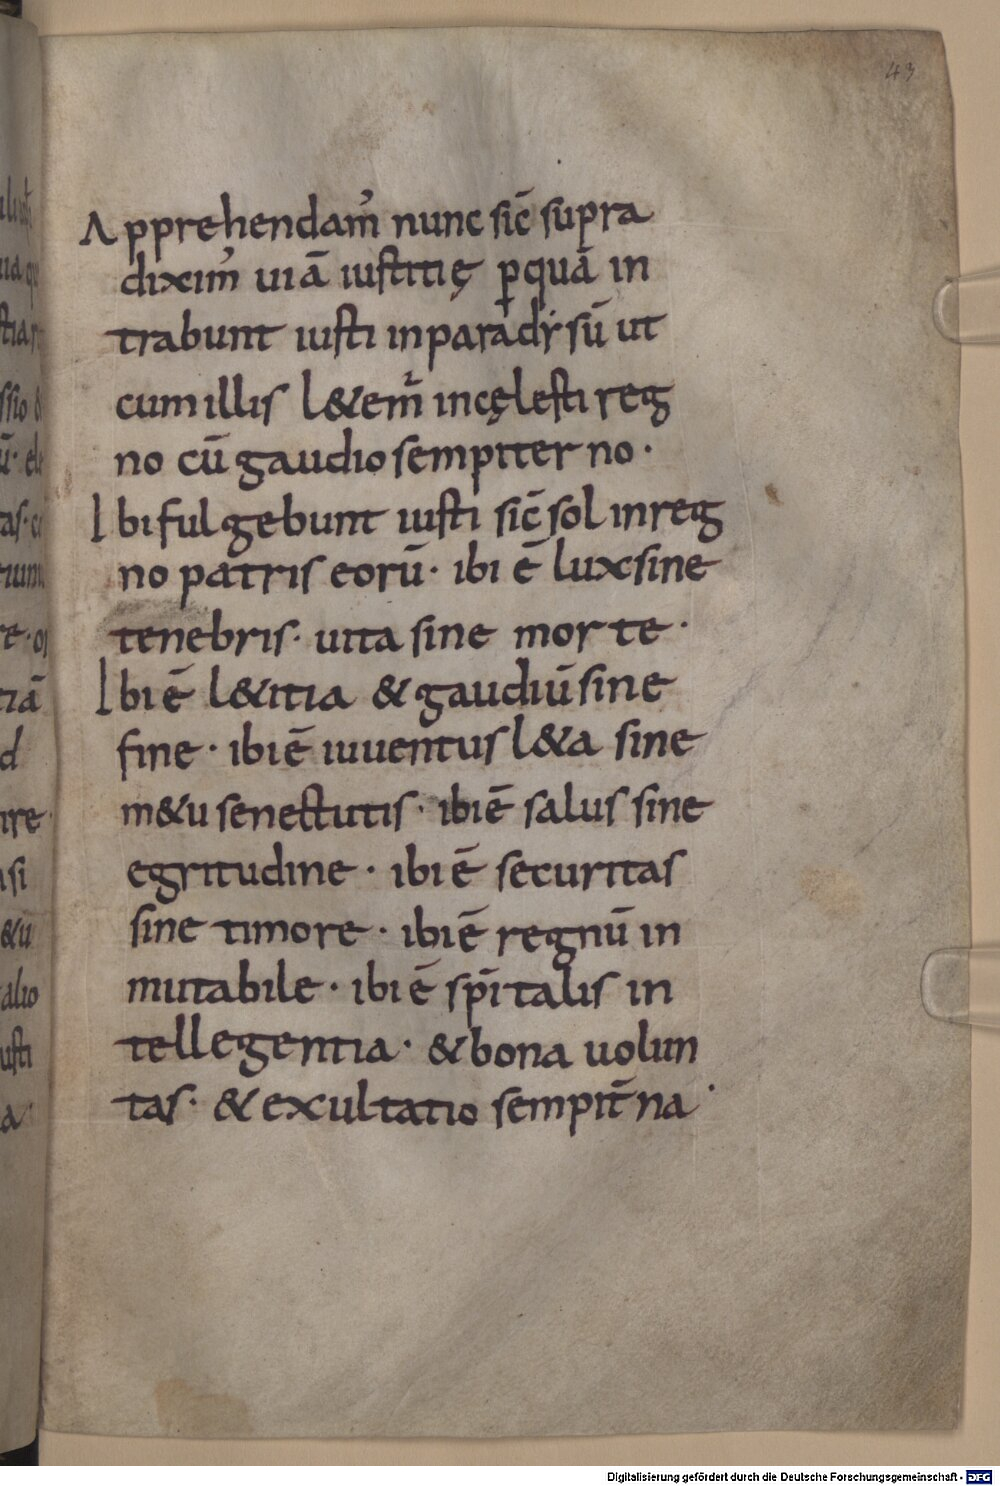 43
Apprehendam̓ nunc sic̄ supra
dixim̓ uiā iustitię ꝑquā in
trabunt iusti inparadẏsū ut
cum illis l&em̓ incęlesti reg
no cū gaudio sempiterno ·
Ibi fulgebunt iusti sic̄ sol inreg
no patris eorū · ibi ē lux sine
tenebris · uita sine morte ·
Ibi ē l&itia & gaudiū sine
fine · ibi ē iuuentus l&a sine
m&u senectutis · ibi ē salus sine
egritudine · ibi ē securitas
sine timore · ibi ē regnū in
mutabile · ibi ē sp̄italis in
tellegentia · & bona uolun
tas · & exultatio sempit̄na ·
Digitalisierung gefördert durch die Deutsche Forschungsgemeinschaft - DFG